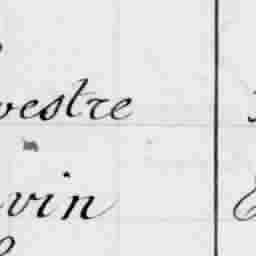 vestre
vin